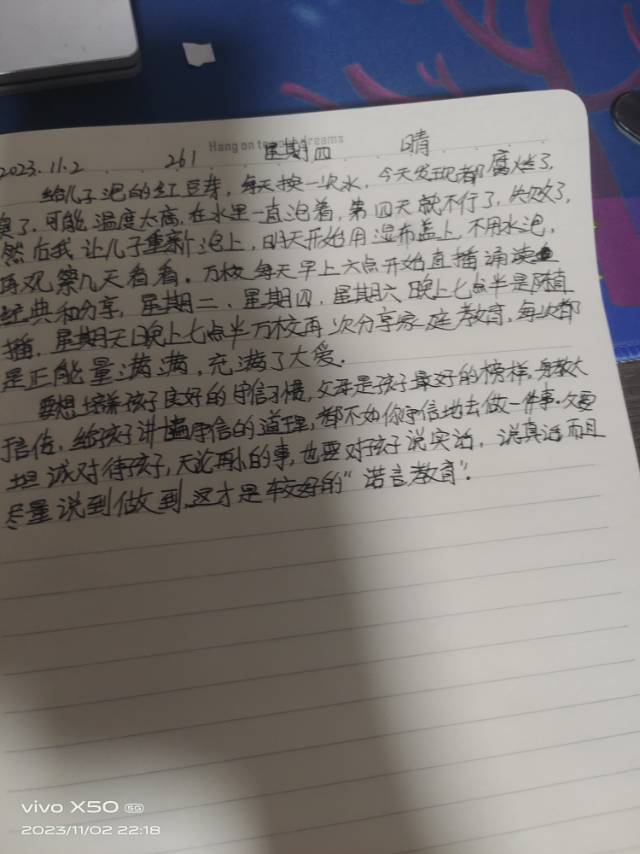 Hang on to your dreams
2023.11.2 261 星期四 晴
给儿子泡的红豆芽，每天换一次水，今天发现都腐烂了，
臭了，可能温度太高，在水里一直泡着，第四天就不行了，失败了，
然后我让儿子重新泡上，明天开始用湿布盖上，不用水泡，
再观察几天看看。万校每天早上六点开始直播诵读
经典和分享，星期二、星期四，星期六晚上七点半是陈直
播，星期天晚上七点半万校再次分享家庭教育，每次都
是正能量满满，充满了大爱。
要想培养孩子良好的守信习惯，父母是孩子最好的榜样，身教大
于言传，给孩子讲遍守信的道理，都不如你守信地去做一件事。父母要
坦诚对待孩子，无论再小的事，也要对孩子说实话，说真话而且
尽量说到做到，这才是较好的“诺言教育”。
vivo X50 5G
2023/11/02 22:18